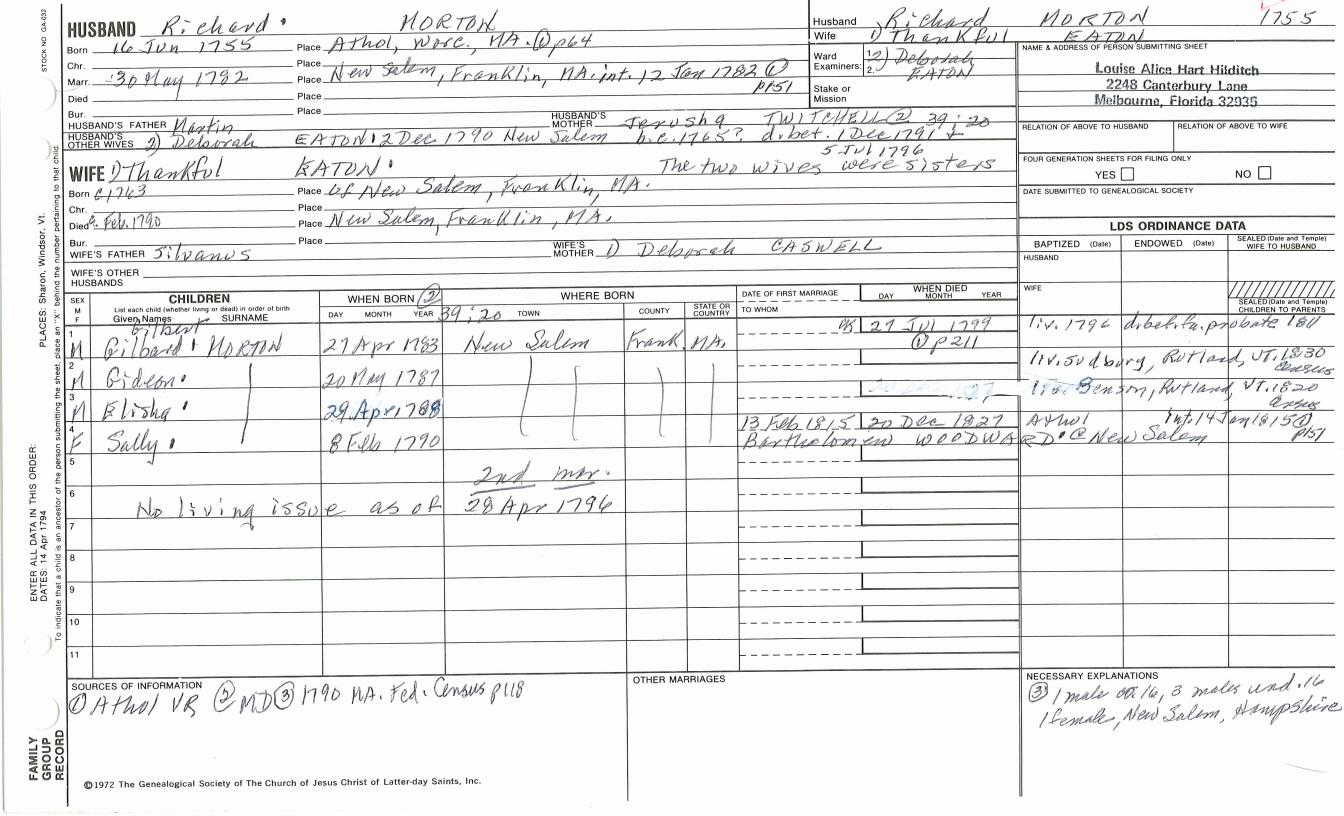 STOCK NO. GA-032
HUSBAND Richard MORTON
Born 16 Jun 1755 Place Athol, Worc., MA. ① p64
Chr. Place
Marr. 30 May 1782 Place New Salem, Franklin, MA. int. 12 Jan 1782 ①
Died Place p151
Bur. Place
HUSBAND'S FATHER Martin HUSBAND'S MOTHER Jerusha TWITCHELL ② 39:20
HUSBAND'S OTHER WIVES 2) Deborah EATON 12 Dec. 1790 New Salem b.c.1765? d.bet. 1 Dec 1791 +
5 Jul 1796
The two wives were sisters
WIFE 1) Thankful EATON
Born c1763 Place of New Salem, Franklin, MA.
Chr. Place
Died Feb. 1790 Place New Salem, Franklin, MA.
Bur. Place
WIFE'S FATHER Silvanus WIFE'S MOTHER 1) Deborah CASWELL
WIFE'S OTHER HUSBANDS
Husband Richard MORTON 1755
Wife 1) Thankful EATON
Ward Examiners: 1. 2. 2) Deborah EATON
Stake or Mission
NAME & ADDRESS OF PERSON SUBMITTING SHEET
Louise Alice Hart Hilditch
2248 Canterbury Lane
Melbourne, Florida 32935
RELATION OF ABOVE TO HUSBAND RELATION OF ABOVE TO WIFE
FOUR GENERATION SHEETS FOR FILING ONLY
YES NO
DATE SUBMITTED TO GENEALOGICAL SOCIETY
LDS ORDINANCE DATA
BAPTIZED (Date) ENDOWED (Date) SEALED (Date and Temple) WIFE TO HUSBAND
HUSBAND
WIFE
SEALED (Date and Temple) CHILDREN TO PARENTS
SEX M F CHILDREN WHEN BORN ② WHERE BORN DATE OF FIRST MARRIAGE WHEN DIED
List each child (whether living or dead) in order of birth
Given Names SURNAME DAY MONTH YEAR 39:20 TOWN COUNTY STATE OR COUNTRY TO WHOM DAY MONTH YEAR
Gilbert
1 M Gilbard MORTON 27 Apr 1783 New Salem Frank. MA. 27 Jul 1799 liv. 1796 d.bef.fa. probate 1811
① p211
2 M Gideon 20 May 1787 liv. Sudbury, Rutland, VT. 1830 census
3 M Elisha 29 Apr 1788 Benson, Rutland, VT. 1820 census
4 F Sally 8 Feb 1790 13 Feb 1815 20 Dec 1827 Athol int. 14 Jan 1815 ①
Bartholomew WOODWARD @ New Salem p151
5
2nd mar.
6 No living issue as of 28 Apr 1796
7
8
9
10
11
SOURCES OF INFORMATION
① Athol VR ② MD ③ 1790 MA. Fed. Census p118
OTHER MARRIAGES
NECESSARY EXPLANATIONS
③ 1 male ov. 16, 3 males und. 16
1 female, New Salem, Hampshire
©1972 The Genealogical Society of The Church of Jesus Christ of Latter-day Saints, Inc.
FAMILY GROUP RECORD
ENTER ALL DATA IN THIS ORDER:
DATES: 14 Apr 1794
PLACES: Sharon, Windsor, Vt.
To indicate that a child is an ancestor of the person submitting the sheet, place an "X" behind the number pertaining to that child.